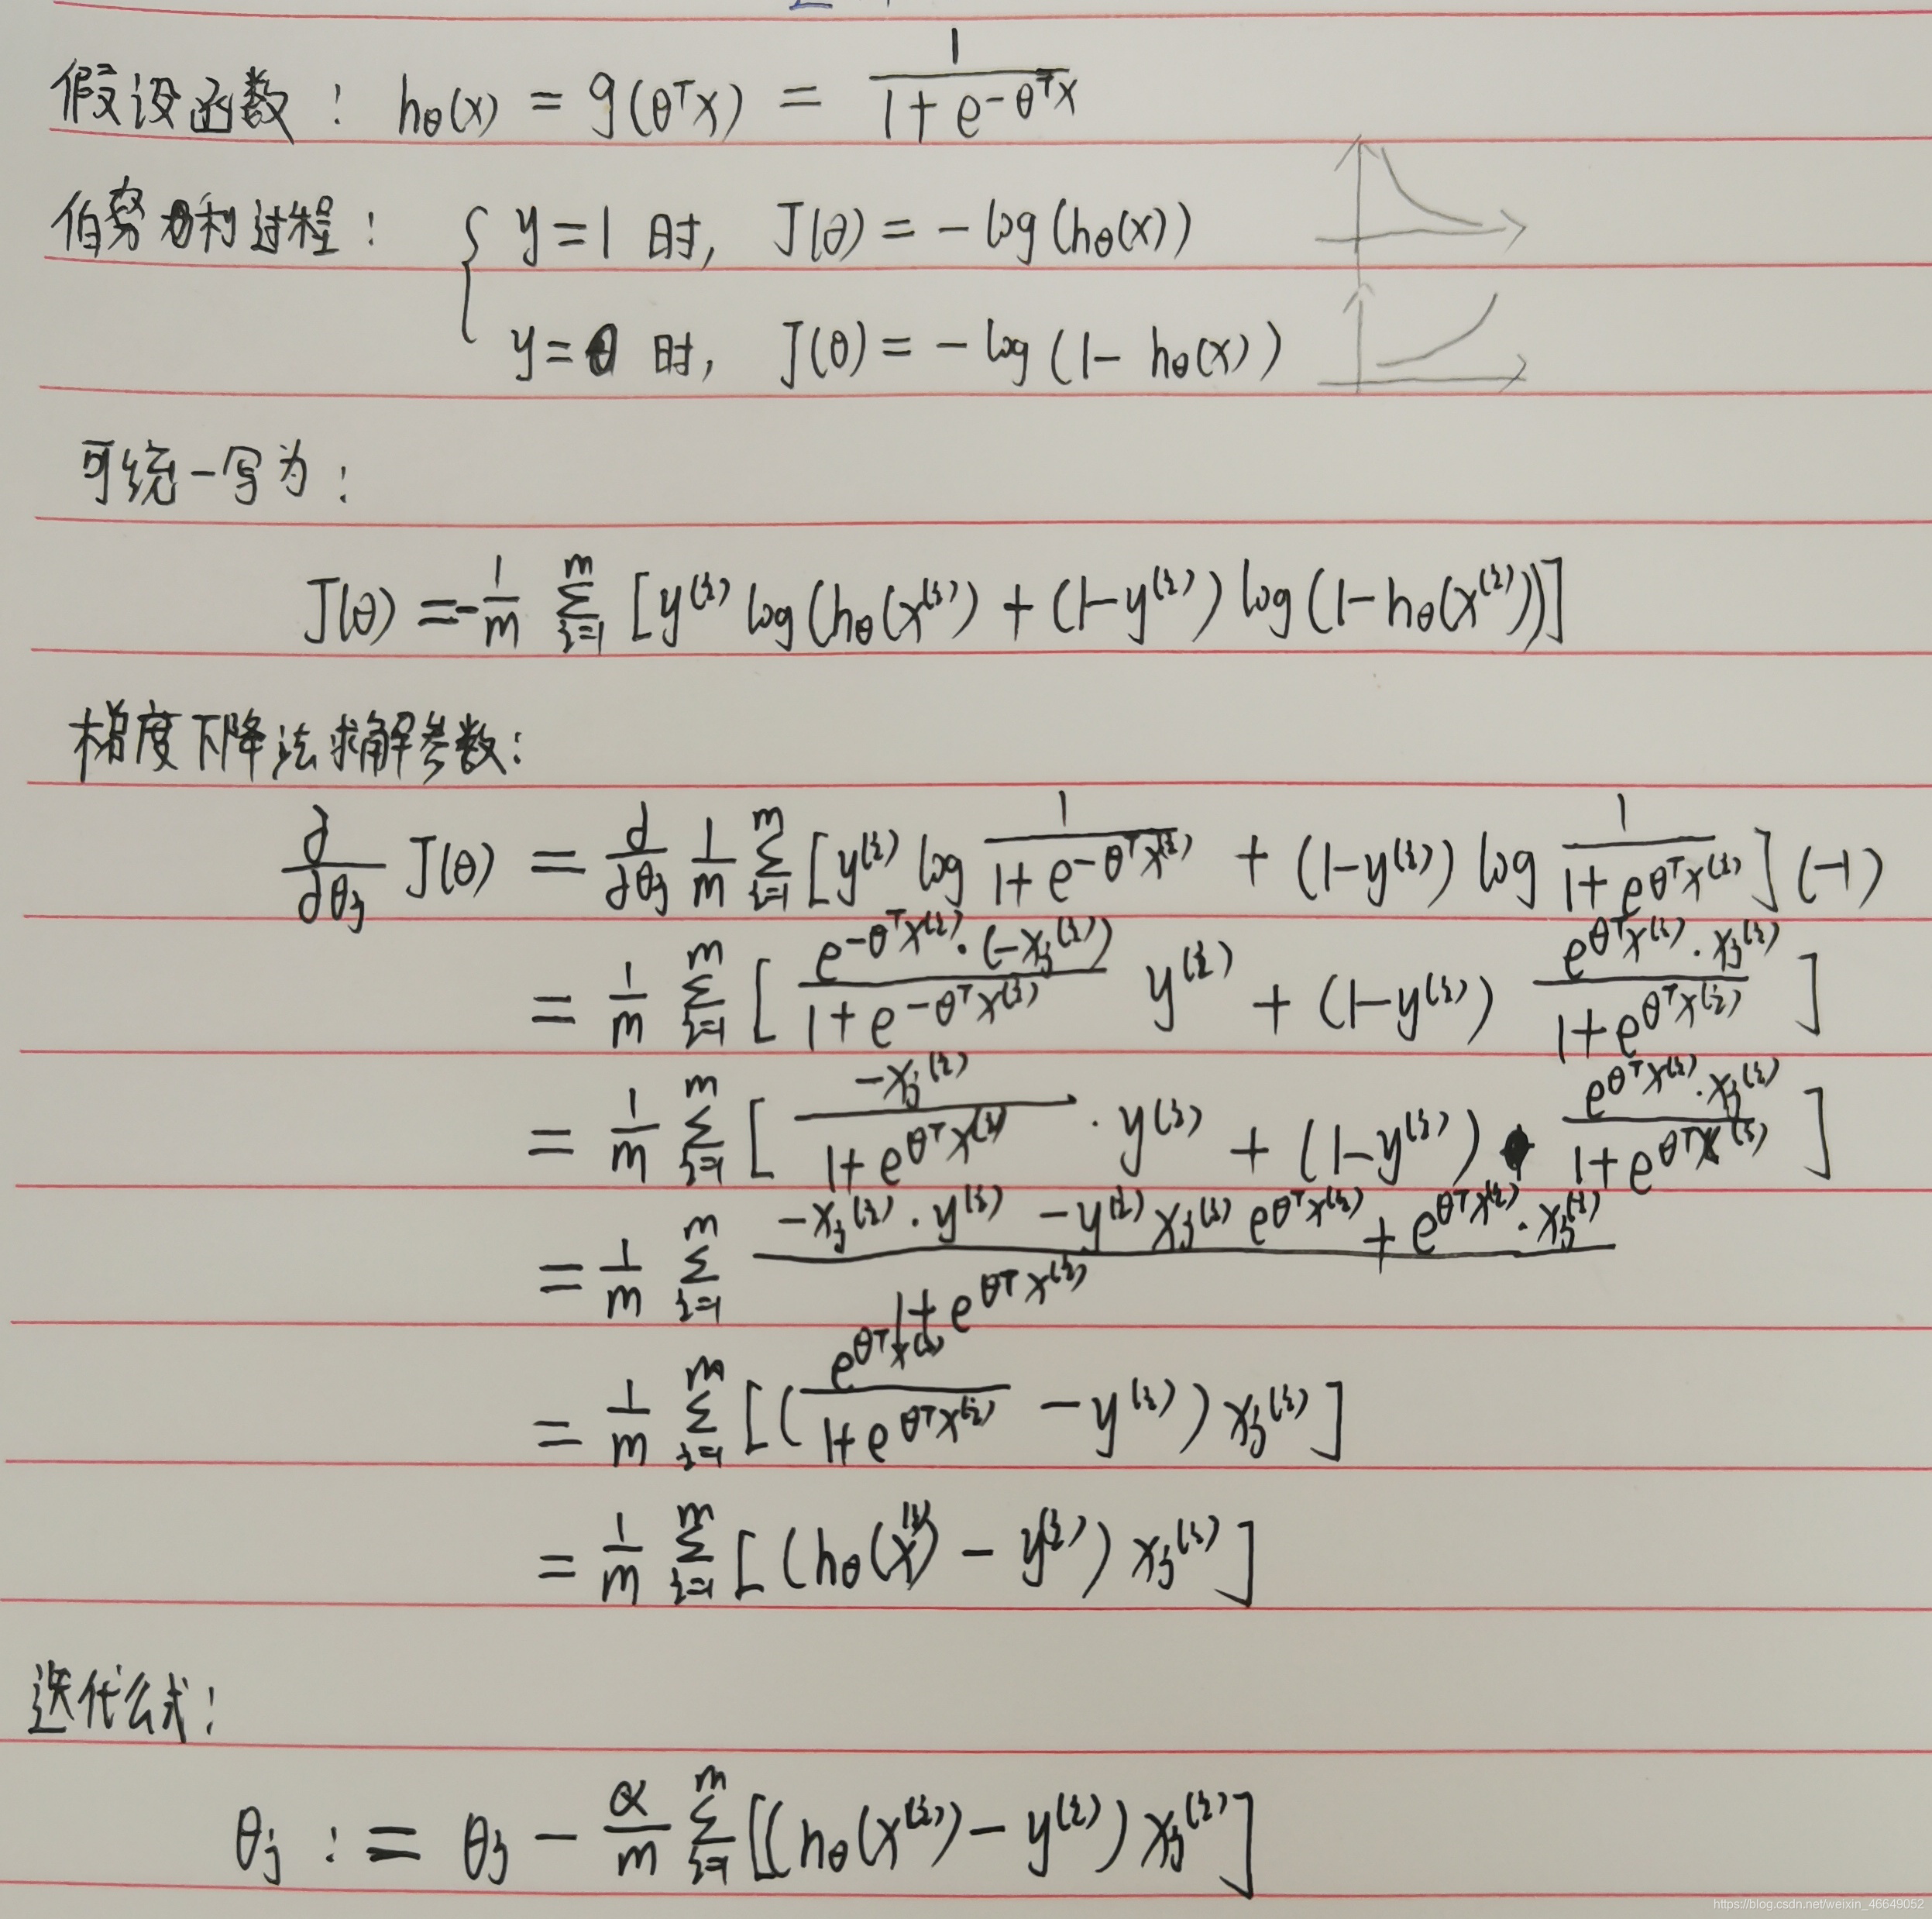 假设函数: hθ(x) = g(θᵀx) = 1/(1+e^(-θᵀx))
伯努利过程: { y=1 时, J(θ) = -log(hθ(x))
y=0 时, J(θ) = -log(1-hθ(x))
可统一写为:
J(θ) = -1/m Σ_{i=1}^{m} [y^(i) log(hθ(x^(i)) + (1-y^(i)) log(1-hθ(x^(i)))]
梯度下降法求解参数:
∂/∂θj J(θ) = ∂/∂θj 1/m Σ_{i=1}^{m} [y^(i) log 1/(1+e^(-θᵀx^(i))) + (1-y^(i)) log 1/(1+e^(θᵀx^(i)))] (-1)
= 1/m Σ_{i=1}^{m} [ (e^(-θᵀx^(i))·(-xj^(i)))/(1+e^(-θᵀx^(i))) y^(i) + (1-y^(i)) (e^(θᵀx^(i))·xj^(i))/(1+e^(θᵀx^(i))) ]
= 1/m Σ_{i=1}^{m} [ (-xj^(i))/(1+e^(θᵀx^(i))) · y^(i) + (1-y^(i)) · (e^(θᵀx^(i))·xj^(i))/(1+e^(θᵀx^(i))) ]
= 1/m Σ_{i=1}^{m} (-xj^(i)·y^(i) - y^(i) xj^(i) e^(θᵀx^(i)) + e^(θᵀx^(i))·xj^(i))/(1+e^(θᵀx^(i)))
= 1/m Σ_{i=1}^{m} [(e^(θᵀx^(i))/(1+e^(θᵀx^(i))) - y^(i)) xj^(i)]
= 1/m Σ_{i=1}^{m} [(hθ(x^(i)) - y^(i)) xj^(i)]
迭代公式:
θj := θj - α/m Σ_{i=1}^{m} [(hθ(x^(i)) - y^(i)) xj^(i)]
https://blog.csdn.net/weixin_46649052